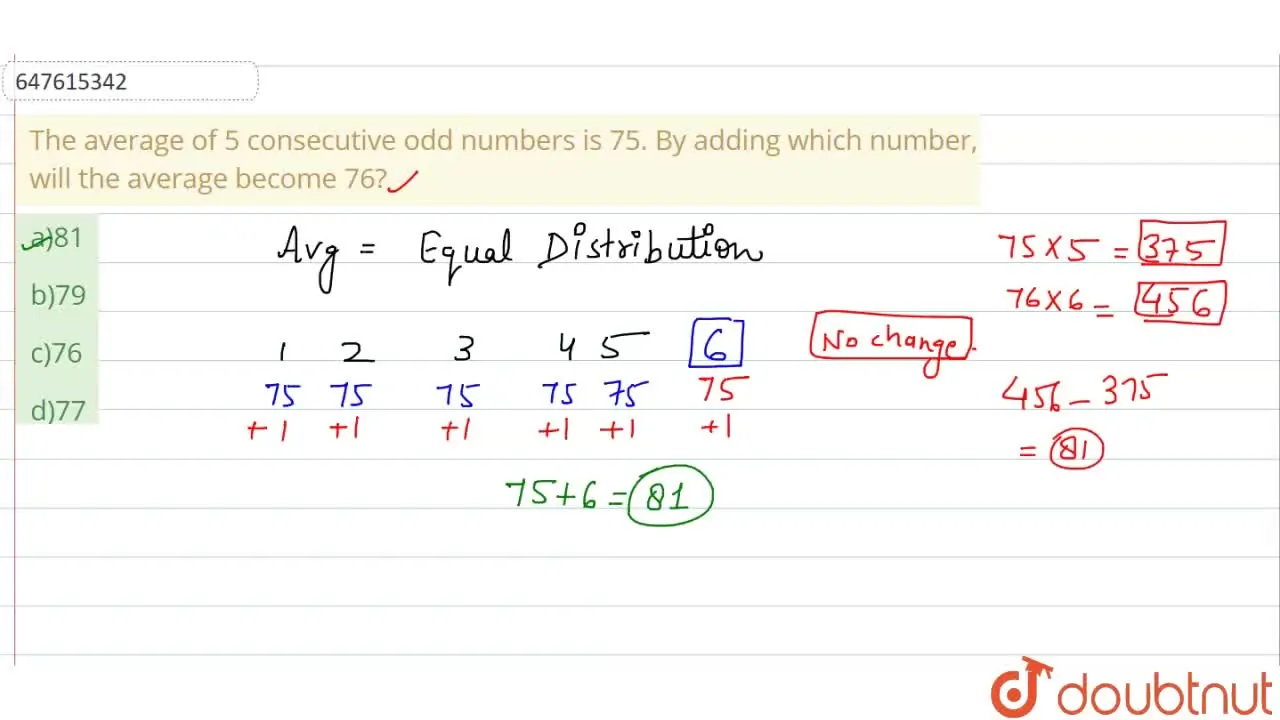 647615342
The average of 5 consecutive odd numbers is 75. By adding which number,
will the average become 76?
a)81
b)79
c)76
d)77
Avg = Equal Distribution
1 2 3 4 5 6
75 75 75 75 75 75
+1 +1 +1 +1 +1 +1
75+6=81
No change.
75×5=375
76×6=456
456-375
=81
doubtnut